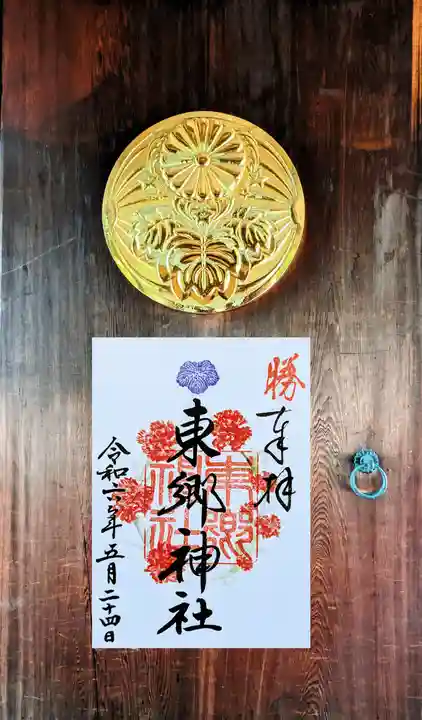 勝
奉拝
東郷神社
東郷神社
令和六年五月二十四日